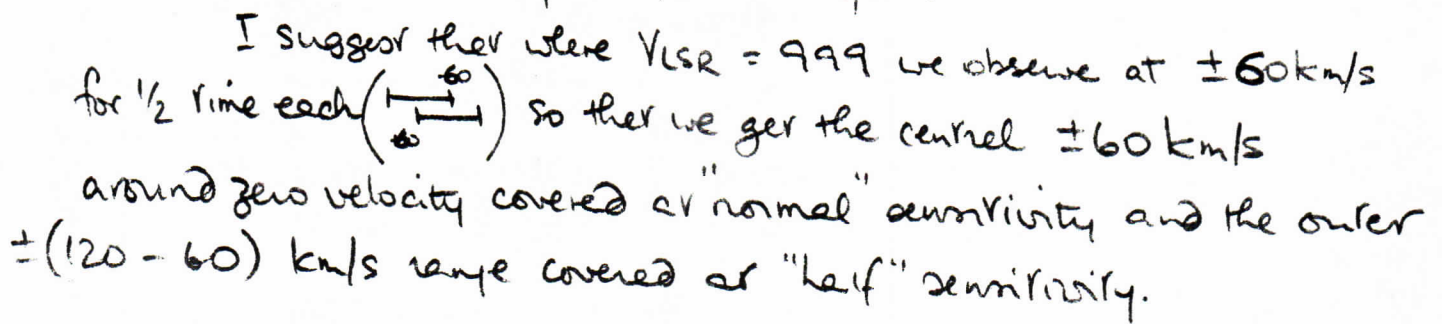 I suggest that where VLSR = 999 we observe at ±60km/s
for 1/2 time each ( -60 +60 ) so that we get the central ±60 km/s
around zero velocity covered at "normal" sensitivity and the outer
±(120 - 60) km/s range covered at "half" sensitivity.